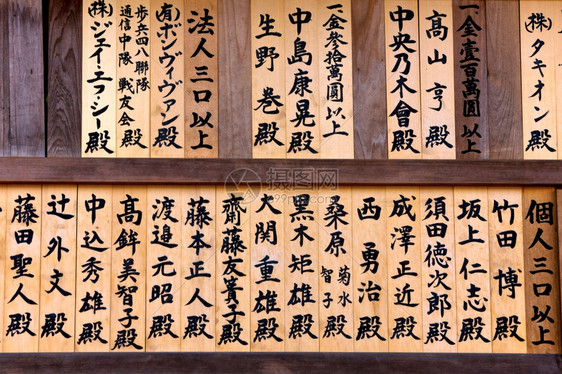 (株)タキオン殿
一金壹百萬圓以上
高山亨殿
中央乃木會殿
一金参拾萬圓以上
中島康晃殿
生野巻殿
法人三口以上
(有)ボンヴィヴァン殿
歩兵四八聯隊
通信中隊戦友会殿
(株)ジェイ・エフ・シー殿
個人三口以上
竹田博殿
坂上仁志殿
須田德次郎殿
成澤正近殿
西勇治殿
桑原菊水
智子殿
黒木矩雄殿
大関重雄殿
齋藤友賽子殿
藤本正人殿
渡邉元昭殿
高鉾美智子殿
中込秀雄殿
辻外文殿
藤田聖人殿